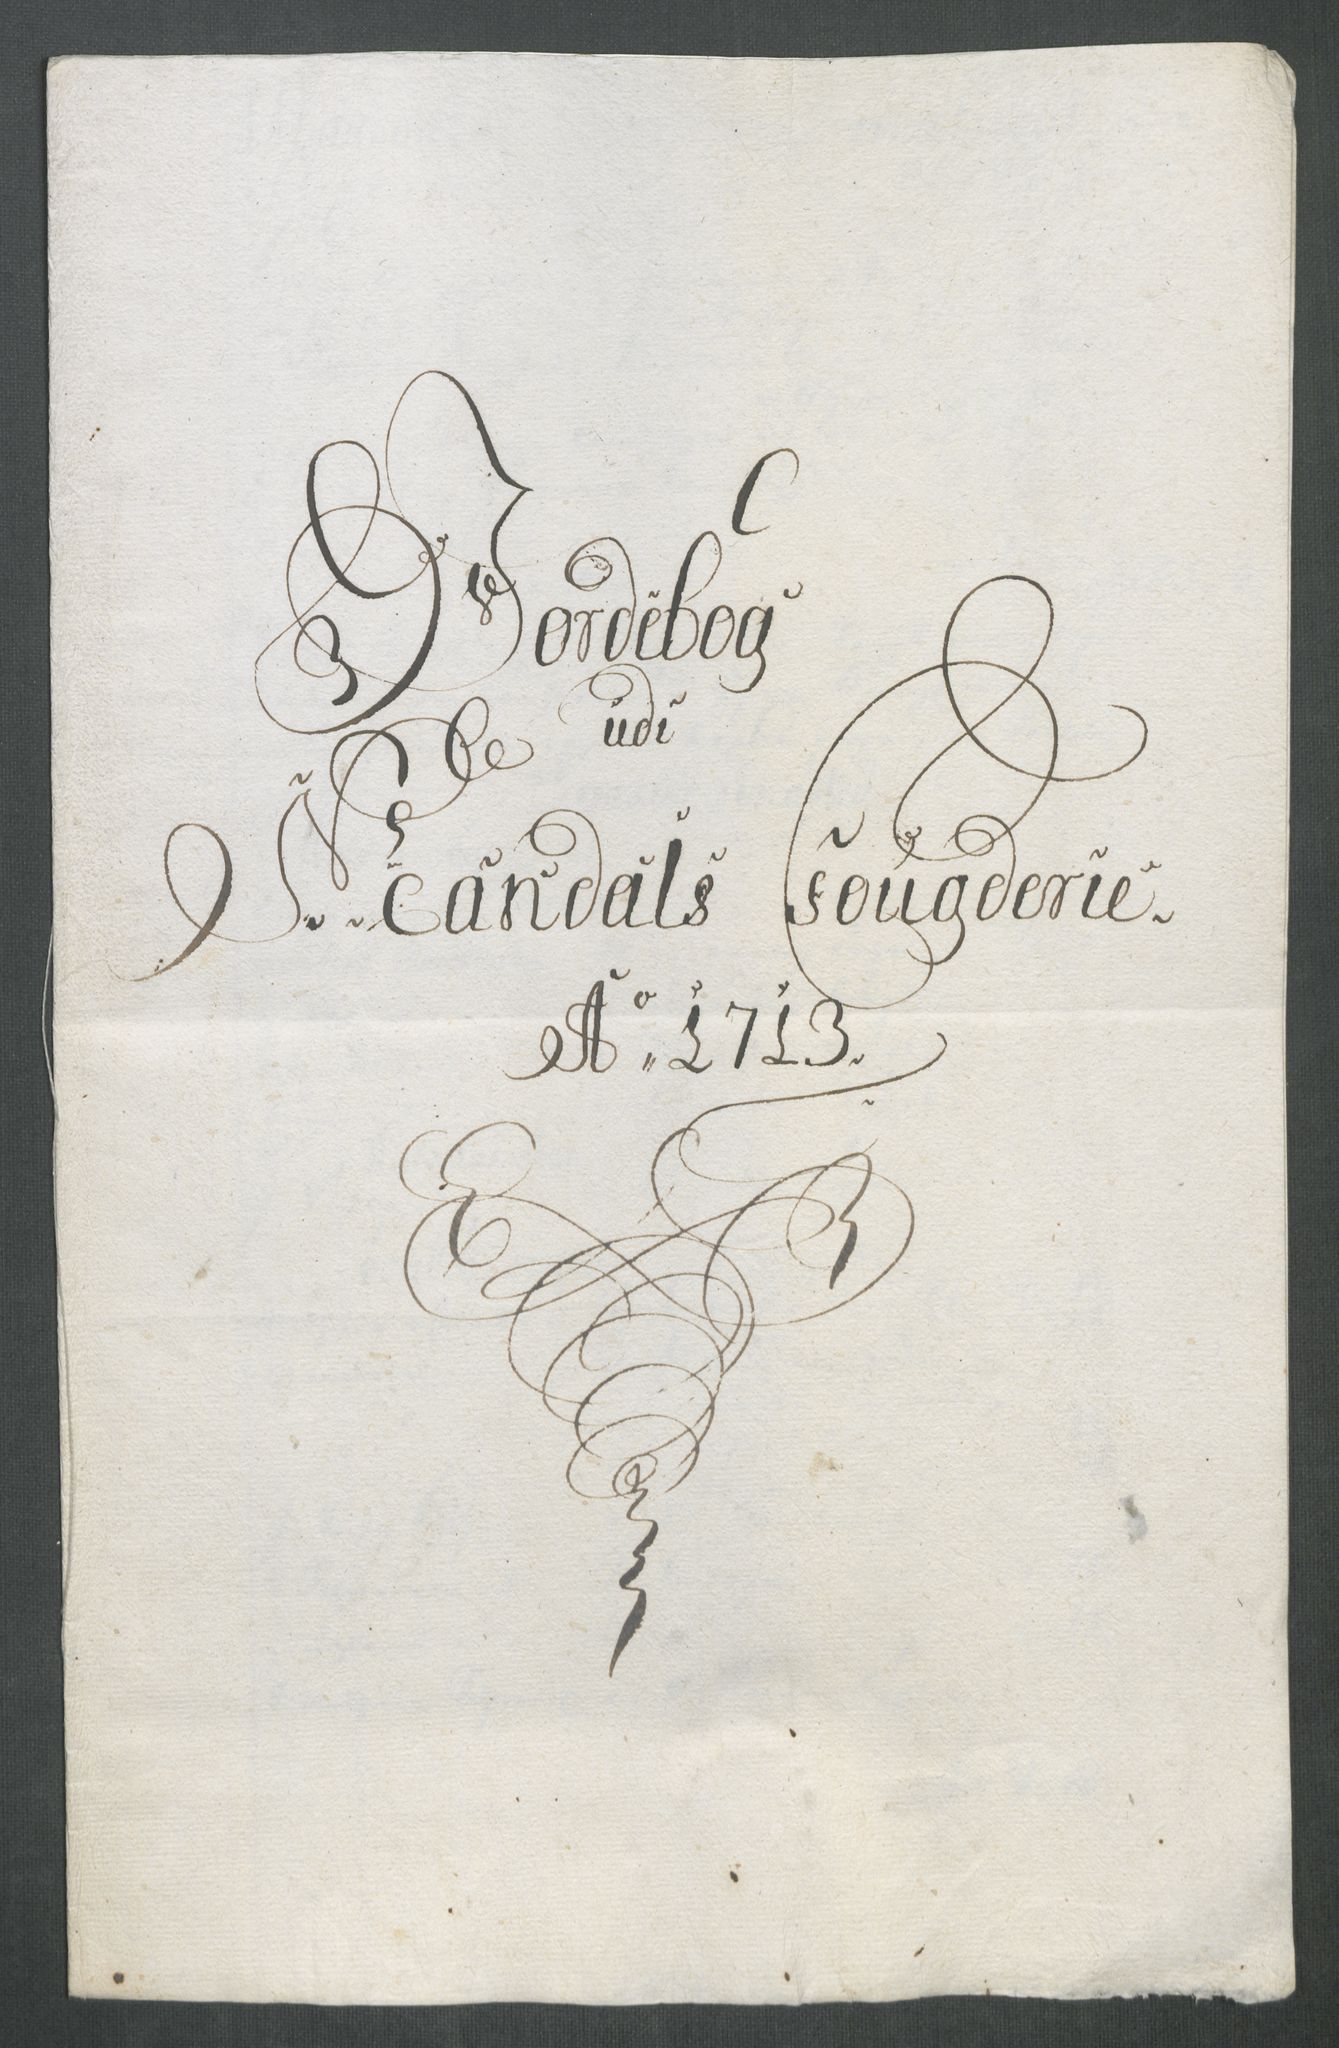 C
Jordebog
udi
Mandals fougderie.
Ao. 1713.